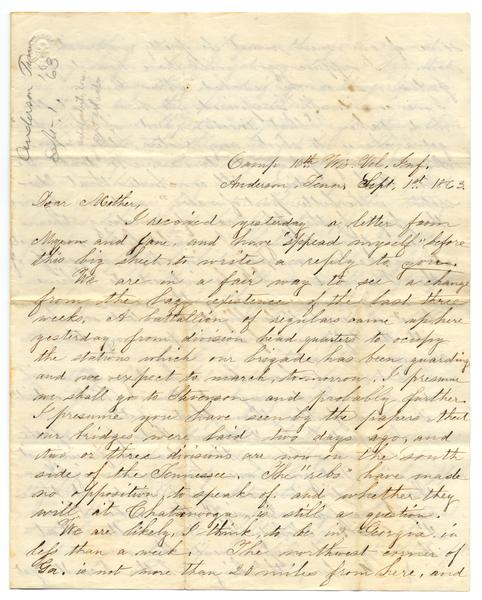 Anderson Tenn
Sept. 1. '63
Camp 10th Wis. Vol. Inf.
Anderson, Tenn. Sept. 1st 1863.
Dear Mother,
I received yesterday a letter from
Myron and Jane, and have "spread myself" before
this big sheet to write a reply to yours.
We are in a fair way to see a change
from the lazy existence of the last three
weeks. A battallion of regulars came up here
yesterday, from division head quarters to occupy
the stations which our brigade has been guarding
and we expect to march, to-morrow. I presume
we shall go to Stevenson and probably further.
I presume you have seen by the papers that
our bridges were laid two days ago, and
two or three divisions are now on the south
side of the Tennessee. The "rebs" have made
no opposition to speak of and whether they
will at Chatanooga is still a question.
We are likely, I think, to be in Georgia in
less than a week. The northwest corner of
Ga. is not more than 20 miles from here, and